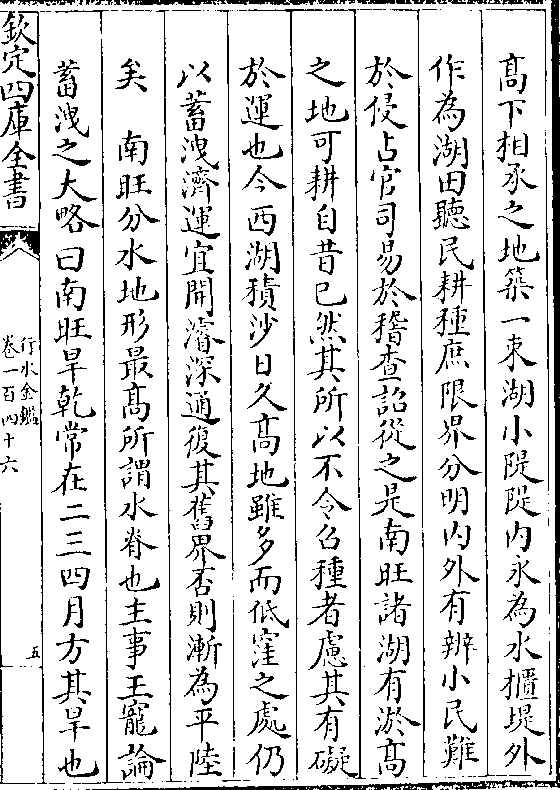 高下相承之地築一束湖小隄隄内永為水櫃堤外
作為湖田聽民耕種庶限界分明内外有辨小民難
於侵占官司易於稽查詔從之是南旺諸湖有淤髙
之地可耕自昔已然其所以不令召種者慮其有礙
於運也今西湖積沙日久髙地雖多而低窪之處仍
以蓄洩濟運宜開濬深通復其舊界否則漸為平陸
矣　南旺分水地形最髙所謂水脊也主事王寵論
蓄洩之大略曰南旺旱乾常在二三四月方其旱也
欽定四庫全書
行水金鑑
卷一百四十六
五